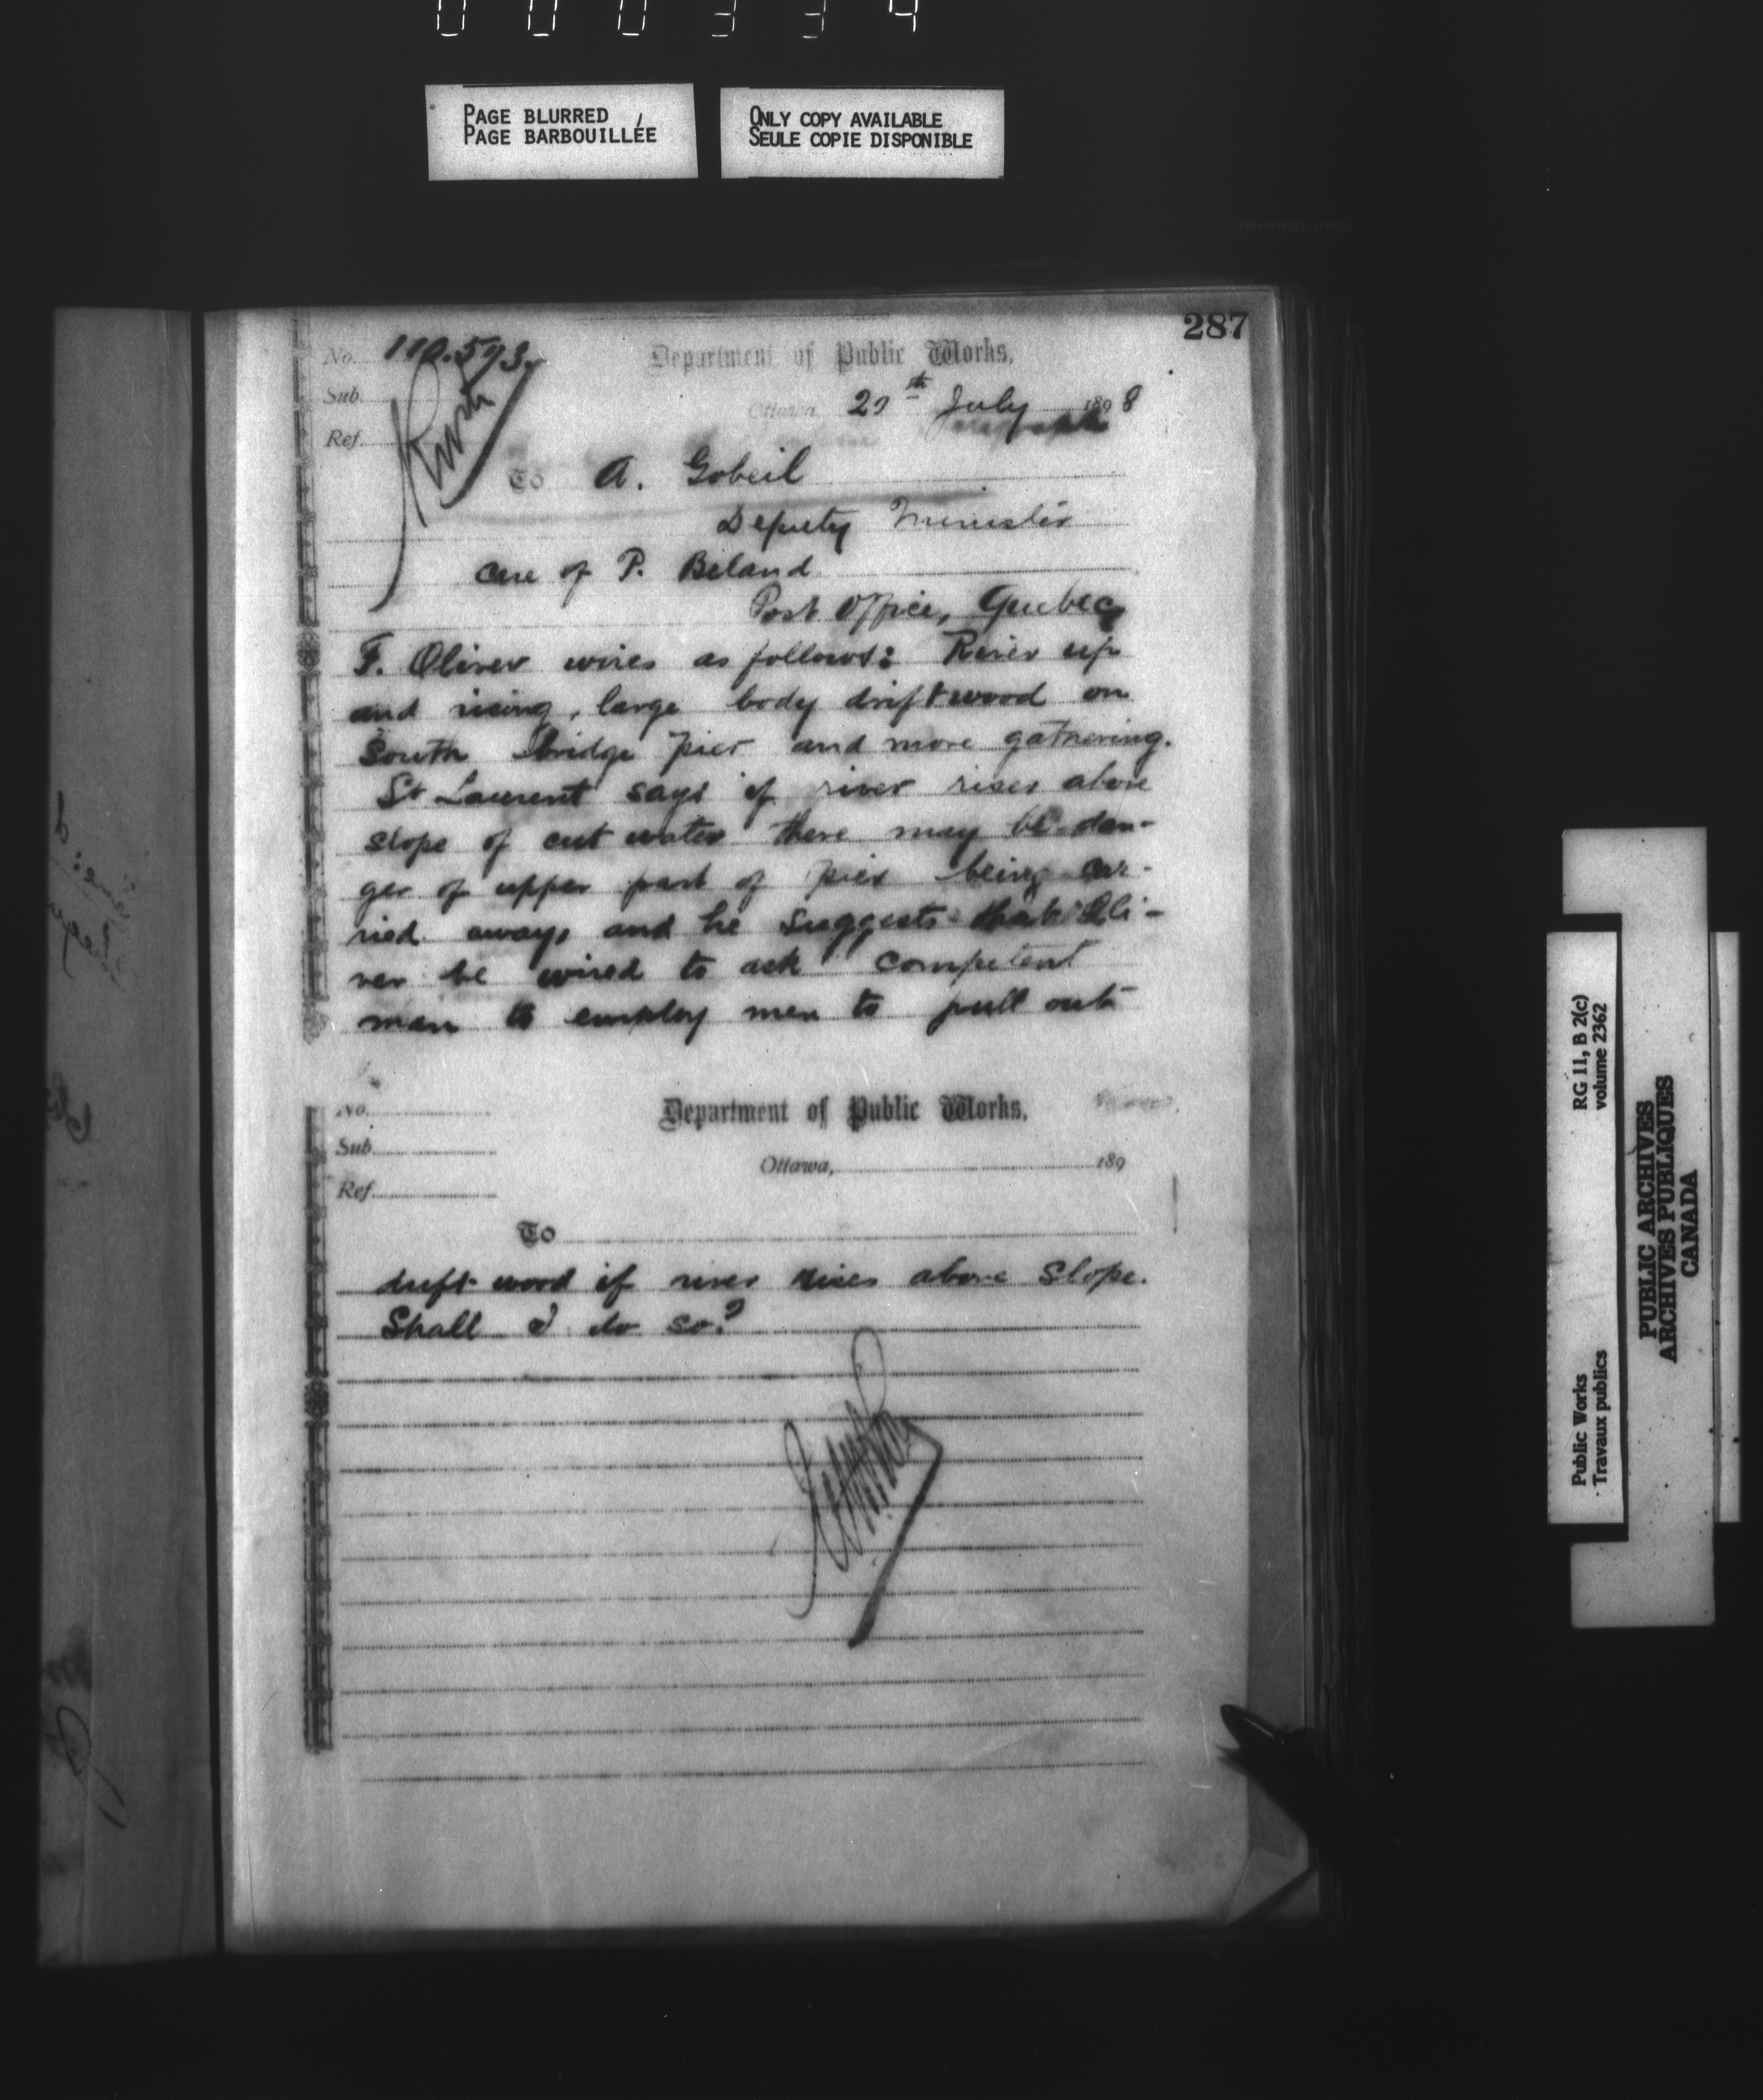 000334
PAGE BLURRED
PAGE BARBOUILLÉE
ONLY COPY AVAILABLE
SEULE COPIE DISPONIBLE
287
No. 110.573.
Department of Public Works,
Sub.
Ottawa 29th July 1898
Ref.
To A. Gobeil
Deputy Minister
Care of P. Beland
Post Office, Quebec
F. Oliver wires as follows: River up
and rising, large body driftwood on
South bridge pier and more gathering.
St Laurent says if river rises above
slope of cut water there may be dan-
ger of upper part of pier being car-
ried away, and he suggests that Oli-
ver be wired to ask competent
man to employ men to pull out
No.
Department of Public Works,
Sub.
Ottawa, 189
Ref.
To
drift wood if river rises above slope.
Shall I do so?
RG 11, B 2(c)
volume 2362
Public Works
Travaux publics
PUBLIC ARCHIVES
ARCHIVES PUBLIQUES
CANADA